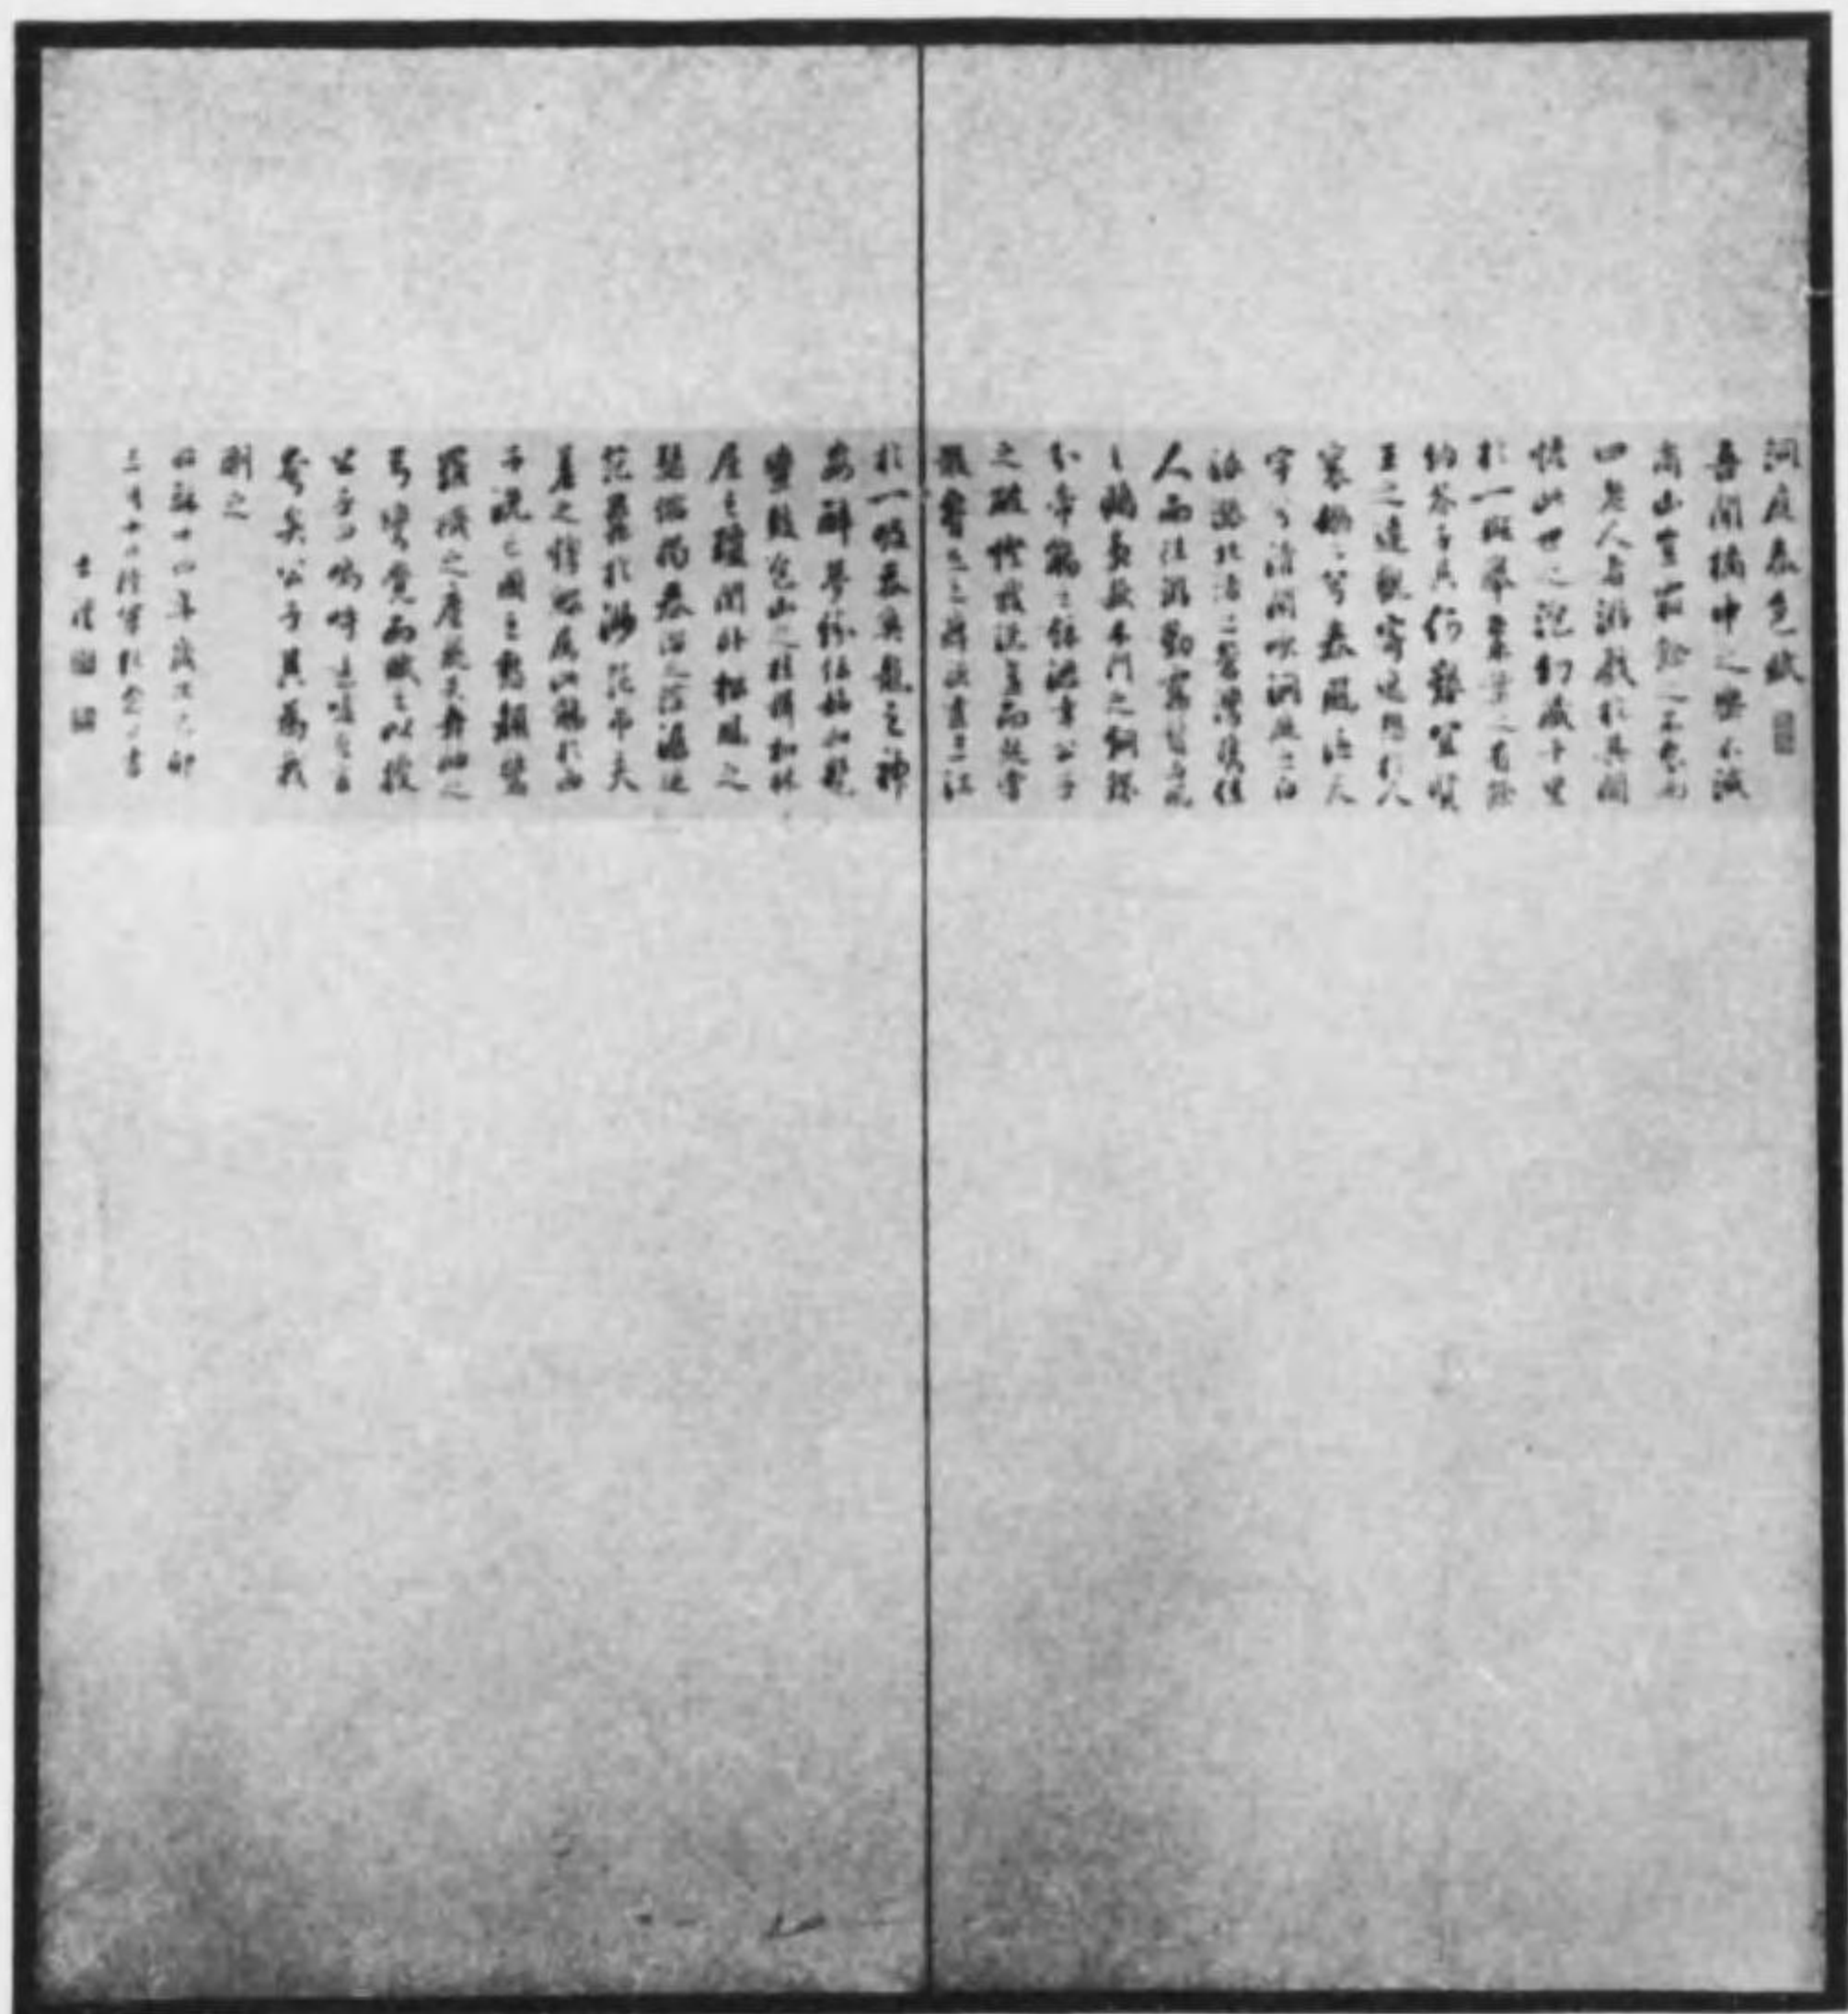 洞庭春色賦
吾聞橘中之樂不減
商山豈霜餘之不食而
四老人者游戲於其間
悟此世之泡幻藏千里
於一班舉棗葉之有餘
納芥子其何艱宜賢
王之達觀寄逸想於人
寰嫋〻兮春風泛天
宇兮清閒吹洞庭之白
浪漲北渚之蒼灣攜佳
人而往游勤霧鬢與風
之鴟夷款木門之銅鐶
分帝觴之餘瀝幸公子
之破慳我洗盞而起嘗
散腰足之痹頑盡三江
於一吸吞魚龍之神
姦醉夢紛紜始如髦
蠻鼓包山之桂楫扣林
屋之瓊關卧松風之
瑟縮揭春溜之淙潺追
范蠡於渺茫吊夫
差之惸鰥屬此觴於西
子洗亡國之愁顏驚
羅襪之塵飛失舞袖之
弓彎覺而賦之以授
公子曰嗚呼噫嘻吾言
夸矣公子其為我
刪之
十四年歲次乙卯
三月書
士